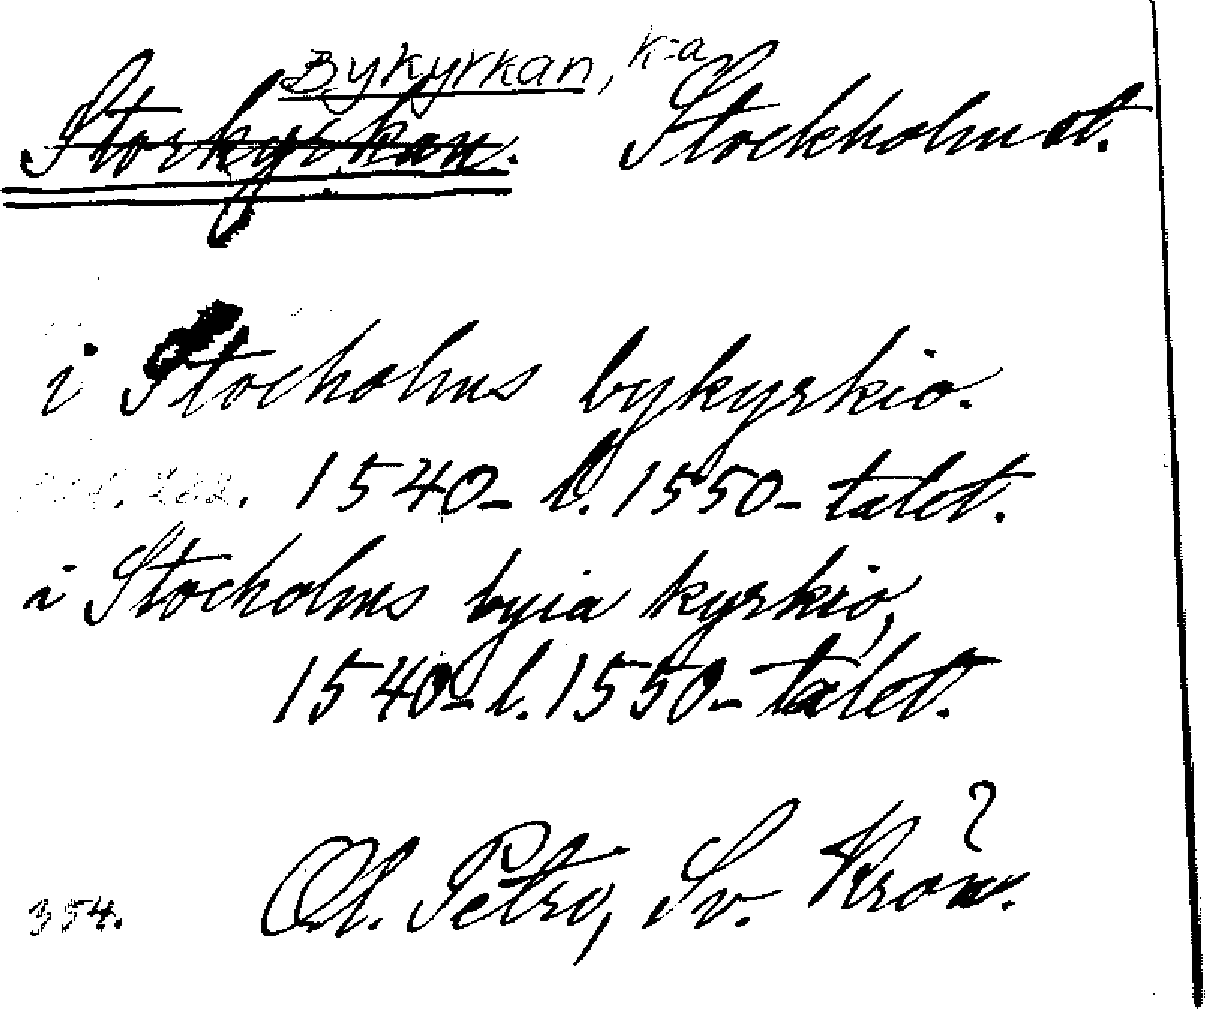 Bykyrkan, k:a
Storkyrkan. Stockholm st.
i Stocholms bykyrkio.
202. 1540- l. 1550-talet.
i Stocholms byia kyrkio,
1540- l. 1550-talet.
Ol. Petro, Sv. Krön. ?
354.